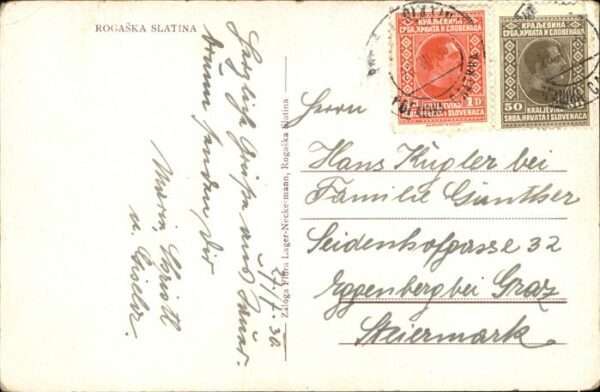 ROGAŠKA SLATINA
Herzliche Grüße aus Sauer-
brunn senden dir
Maria,
u.
30
Založga Flora Lager-Neckermann, Rogaška Slatina
КРАЉЕВИНА
СРБА, ХРВАТА И СЛОВЕНАЦА
1 D
KRALJEVINA
SRBA, HRVATA I SLOVENACA
КРАЉЕВИНА
СРБА, ХРВАТА И СЛОВЕНАЦА
50
KRALJEVINA
SRBA, HRVATA I SLOVENACA
Herrn
Hans Kügler bei
Familie Günther
Seidenhofgasse 32
Eggenberg bei Graz
Steiermark.